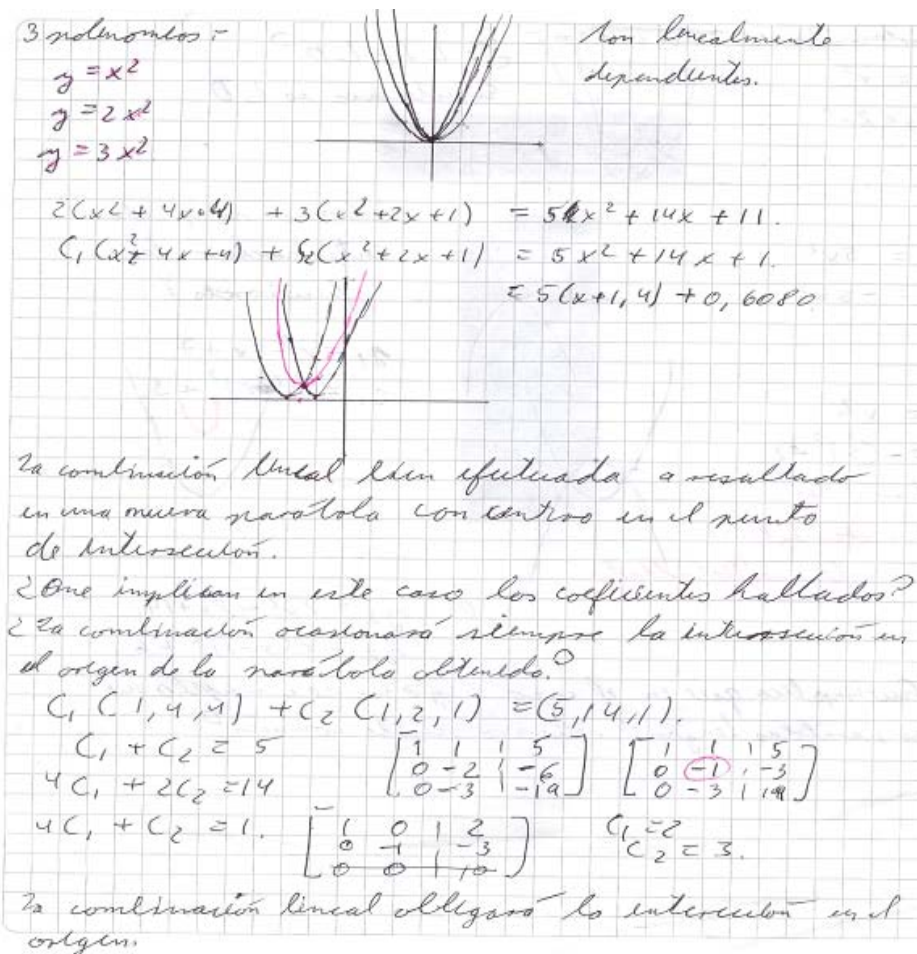 3 polinomios =
y = x²
y = 2x²
y = 3x²
son linealmente
dependientes.
2(x² + 4x+4) + 3(x²+2x+1) = 5x² + 14x + 11.
C₁(x²+4x+4) + C₂(x²+2x+1) = 5x² + 14x + 1.
= 5(x+1,4) + 0,6080
La combinación lineal bien efetuada a resultado
en una nueva parábola con centro en el punto
de intersección.
¿Que implican en este caso los coeficientes hallados?
¿La combinación ocasionará siempre la intersección en
el origen de la parábola obtenida?
C₁(1,4,4) + C₂(1,2,1) = (5,14,1).
C₁ + C₂ = 5
4C₁ + 2C₂ = 14
4C₁ + C₂ = 1.
[1 1 | 5
0 -2 | -6
0 -3 | -19]
[1 1 | 5
0 -1 | -3
0 -3 | 19]
[1 0 | 2
0 -1 | -3
0 0 | 10]
C₁ = 2
C₂ = 3.
La combinación lineal obligará la intersección en el
origen.